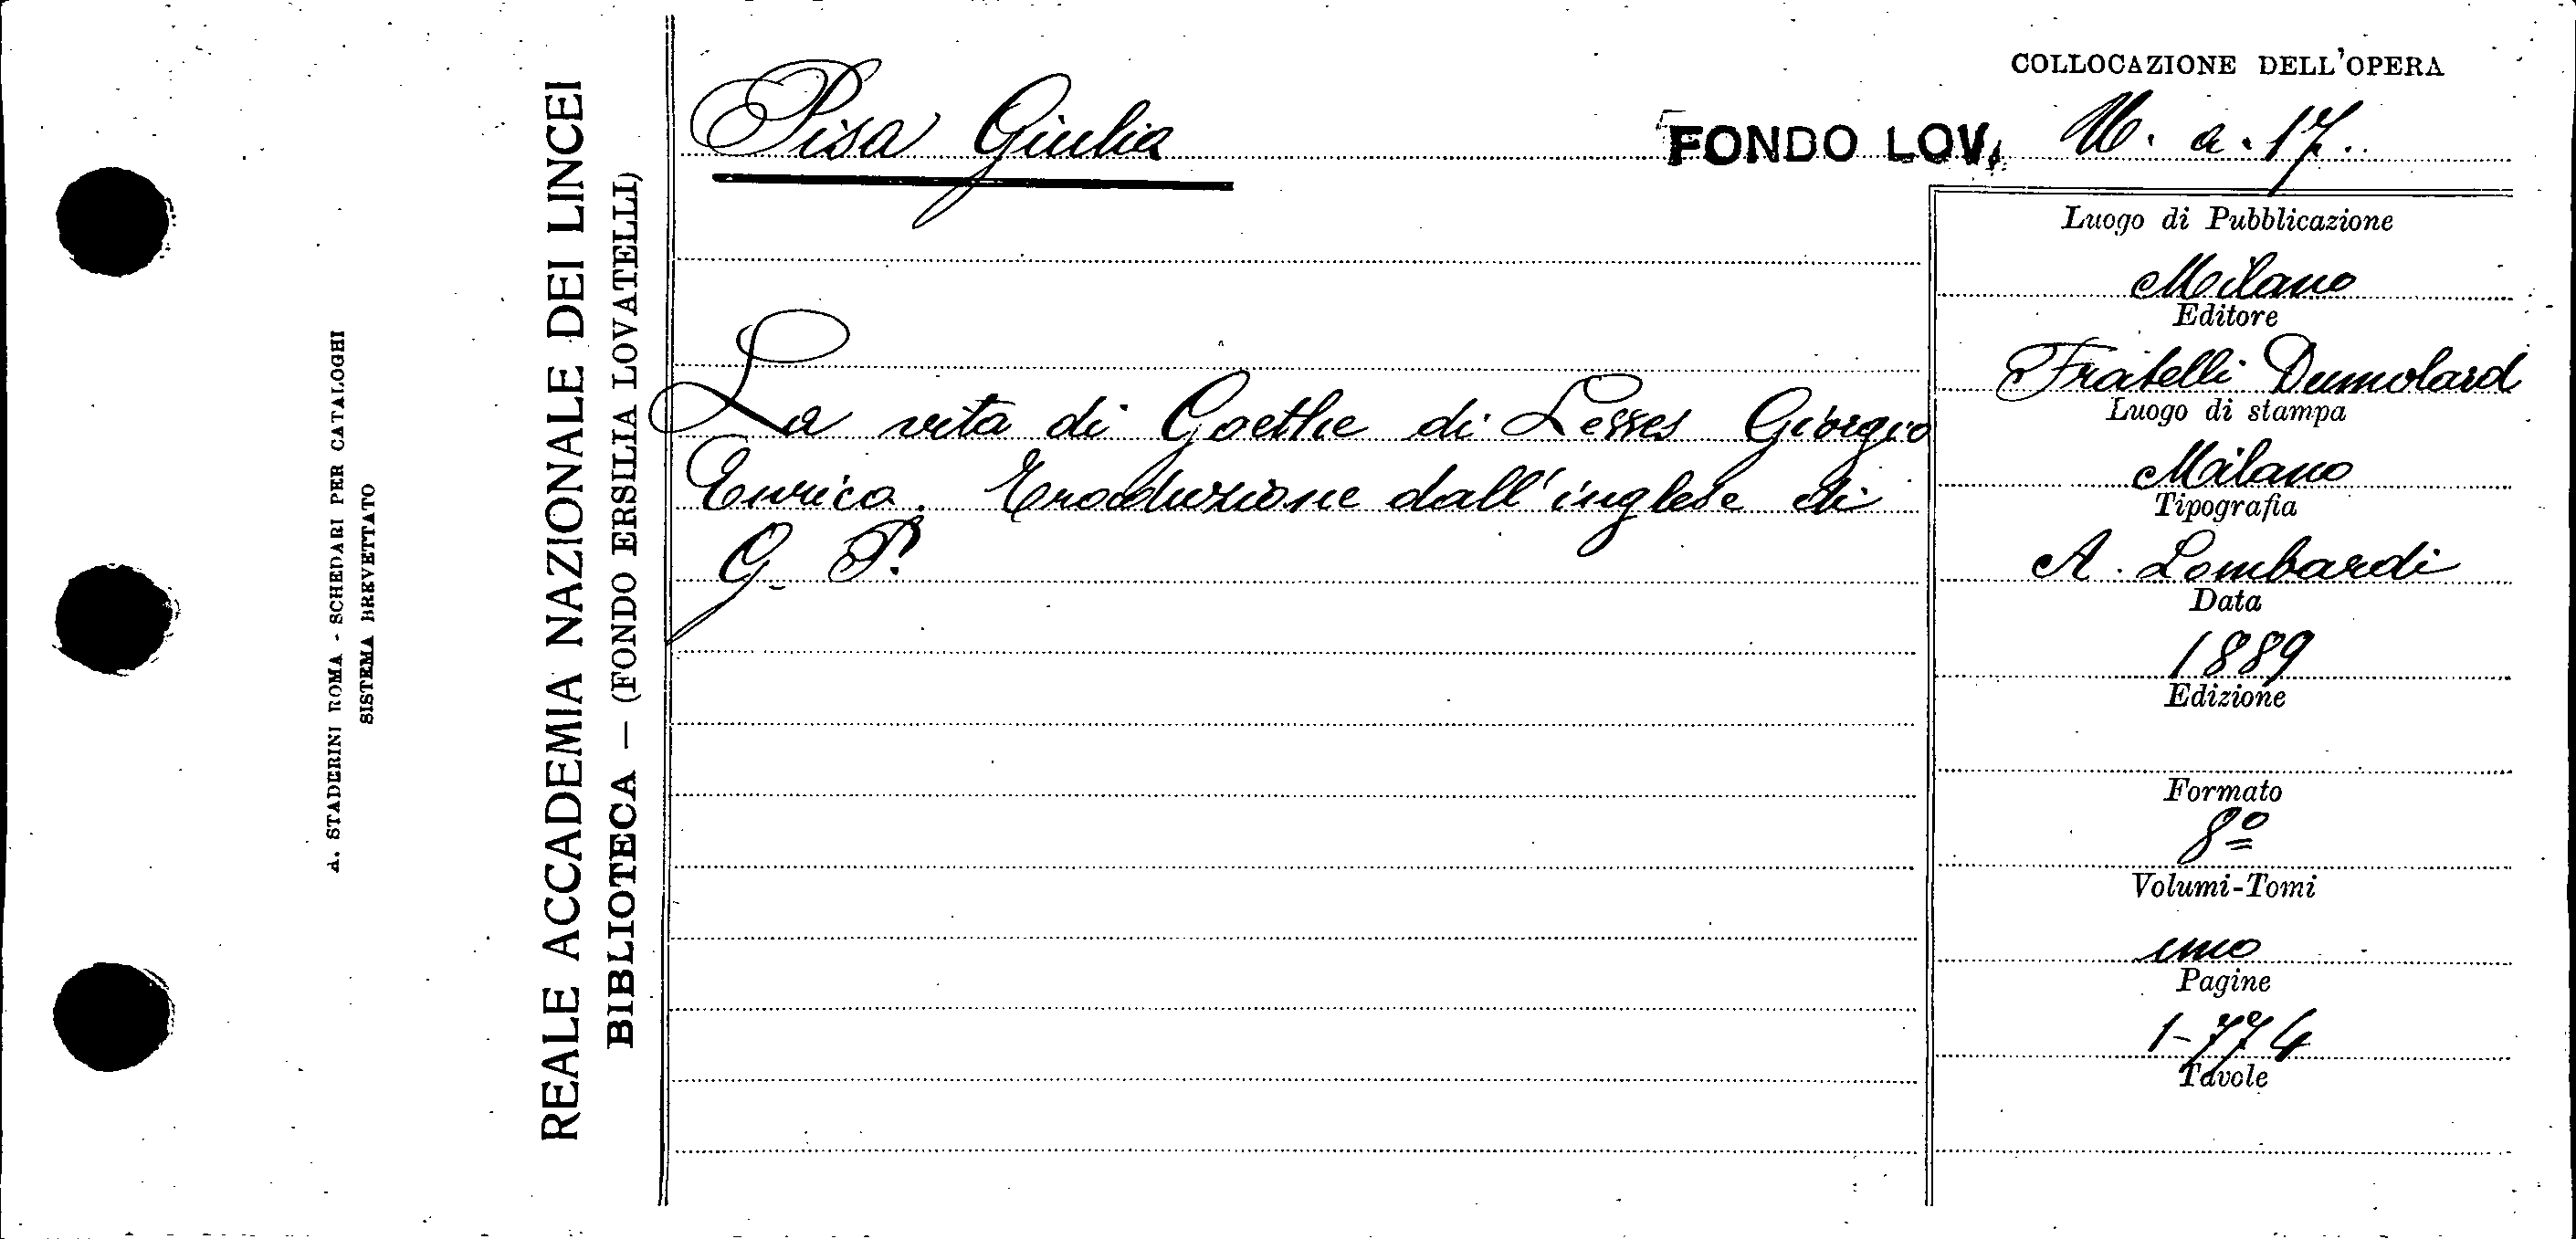 COLLOCAZIONE DELL'OPERA
Pisa Giulia
FONDO LOV. M. a. 17.
La vita di Goethe di Lesses Giorgio
Enrico. Traduzione dall'inglese di
G. P.
Luogo di Pubblicazione
Milano
Editore
Fratelli Dumolard
Luogo di stampa
Milano
Tipografia
A. Lombardi
Data
1889
Edizione
Formato
8º
Volumi-Tomi
uno
Pagine
1-774
Tavole
REALE ACCADEMIA NAZIONALE DEI LINCEI
BIBLIOTECA — (FONDO ERSILIA LOVATELLI)
A. STADERINI ROMA - SCHEDARI PER CATALOGHI
SISTEMA BREVETTATO